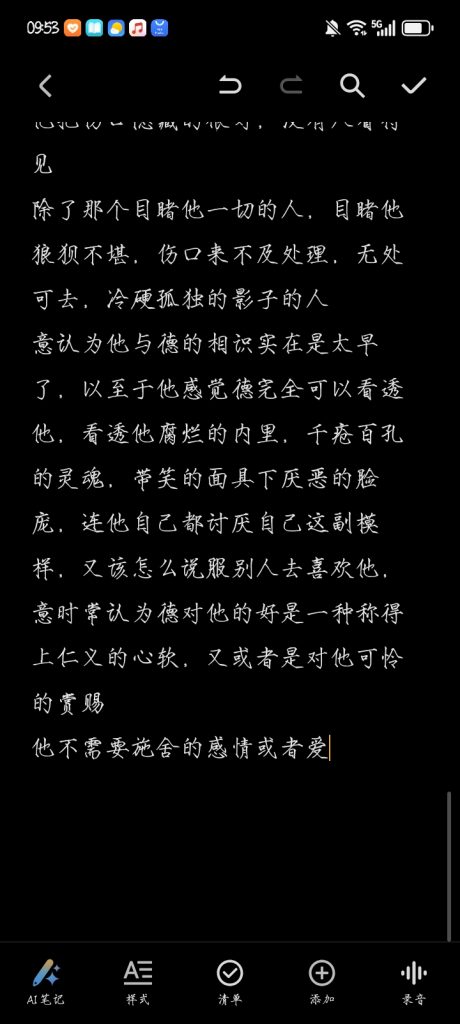 09:53
5G
见
除了那个目睹他一切的人，目睹他
狼狈不堪，伤口来不及处理，无处
可去，冷硬孤独的影子的人
意认为他与德的相识实在是太早
了，以至于他感觉德完全可以看透
他，看透他腐烂的内里，千疮百孔
的灵魂，带笑的面具下厌恶的脸
庞，连他自己都讨厌自己这副模
样，又该怎么说服别人去喜欢他，
意时常认为德对他的好是一种称得
上仁义的心软，又或者是对他可怜
的赏赐
他不需要施舍的感情或者爱
AI笔记
样式
清单
添加
录音